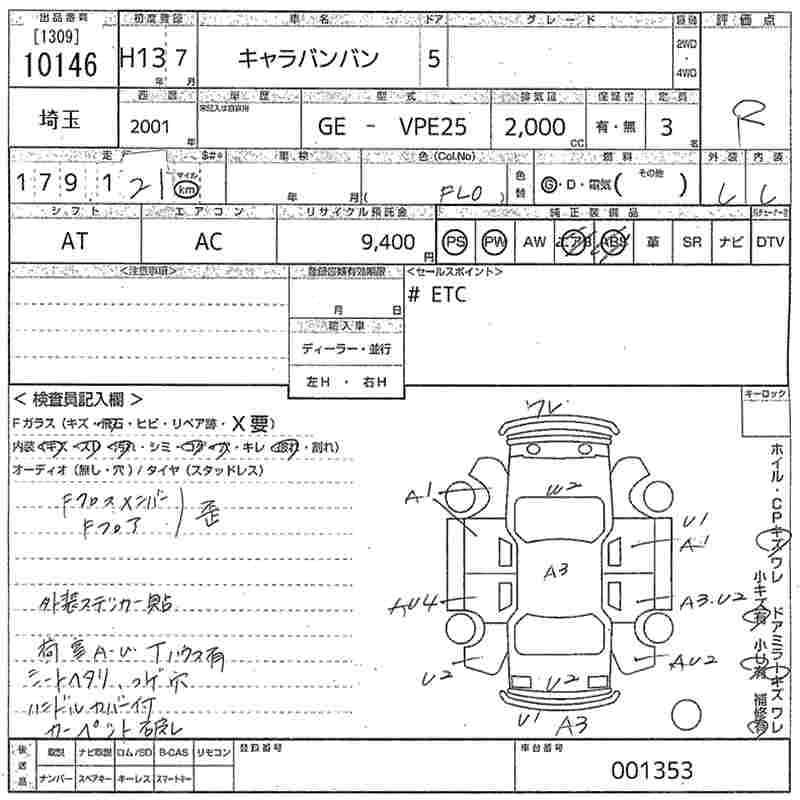 出品番号 初度登録 車名 ドア グレード 駆動 評価点
[1309]
10146 H13 7 キャラバンバン 5 2WD・4WD R
年 月
埼玉 西暦 車歴 型式 排気量 保証書 定員
2001 年 GE - VPE25 2,000 CC 有・無 3 名
走行 車検 色(Col.No) 燃料 外装 内装
179,121 マイル km 年 月 ( FL0 ) 色替 G・D・電気( その他 ) L L
シフト エアコン リサイクル預託金 純正装備品
AT AC 9,400 円 PS PW AW エアB ABS 革 SR ナビ DTV
<注意事項> 登録名義有効期限 <セールスポイント>
月 日 # ETC
輸入車
ディーラー・並行
左H ・ 右H
< 検査員記入欄 > キーロック
Fガラス(キズ・飛石・ヒビ・リペア跡・X要)
内装(キズ・スレ・汚れ・シミ・コゲ・穴・キレ・捨れ・割れ)
オーディオ(無し・穴)/タイヤ(スタッドレス)
Fクロスメンバー
Fフロア ) 歪
外装ステッカー貼
荷室A-U Tハウス有
シートヘタリ、コゲ穴
ハンドルカバー付
カーペット破れ
ワレ
U2
A1
U1
A1
A3
AU4
A3.U2
U2
AU2
U2
U1 A3
ホイル・CPキズワレ
ドアミラーキズワレ
小キズ有 小U有 補修有
後送品 取説 ナビ取説 ロム/SD B-CAS リモコン 登録番号 車台番号
ナンバー スペアキー キーレス スマートキー 001353